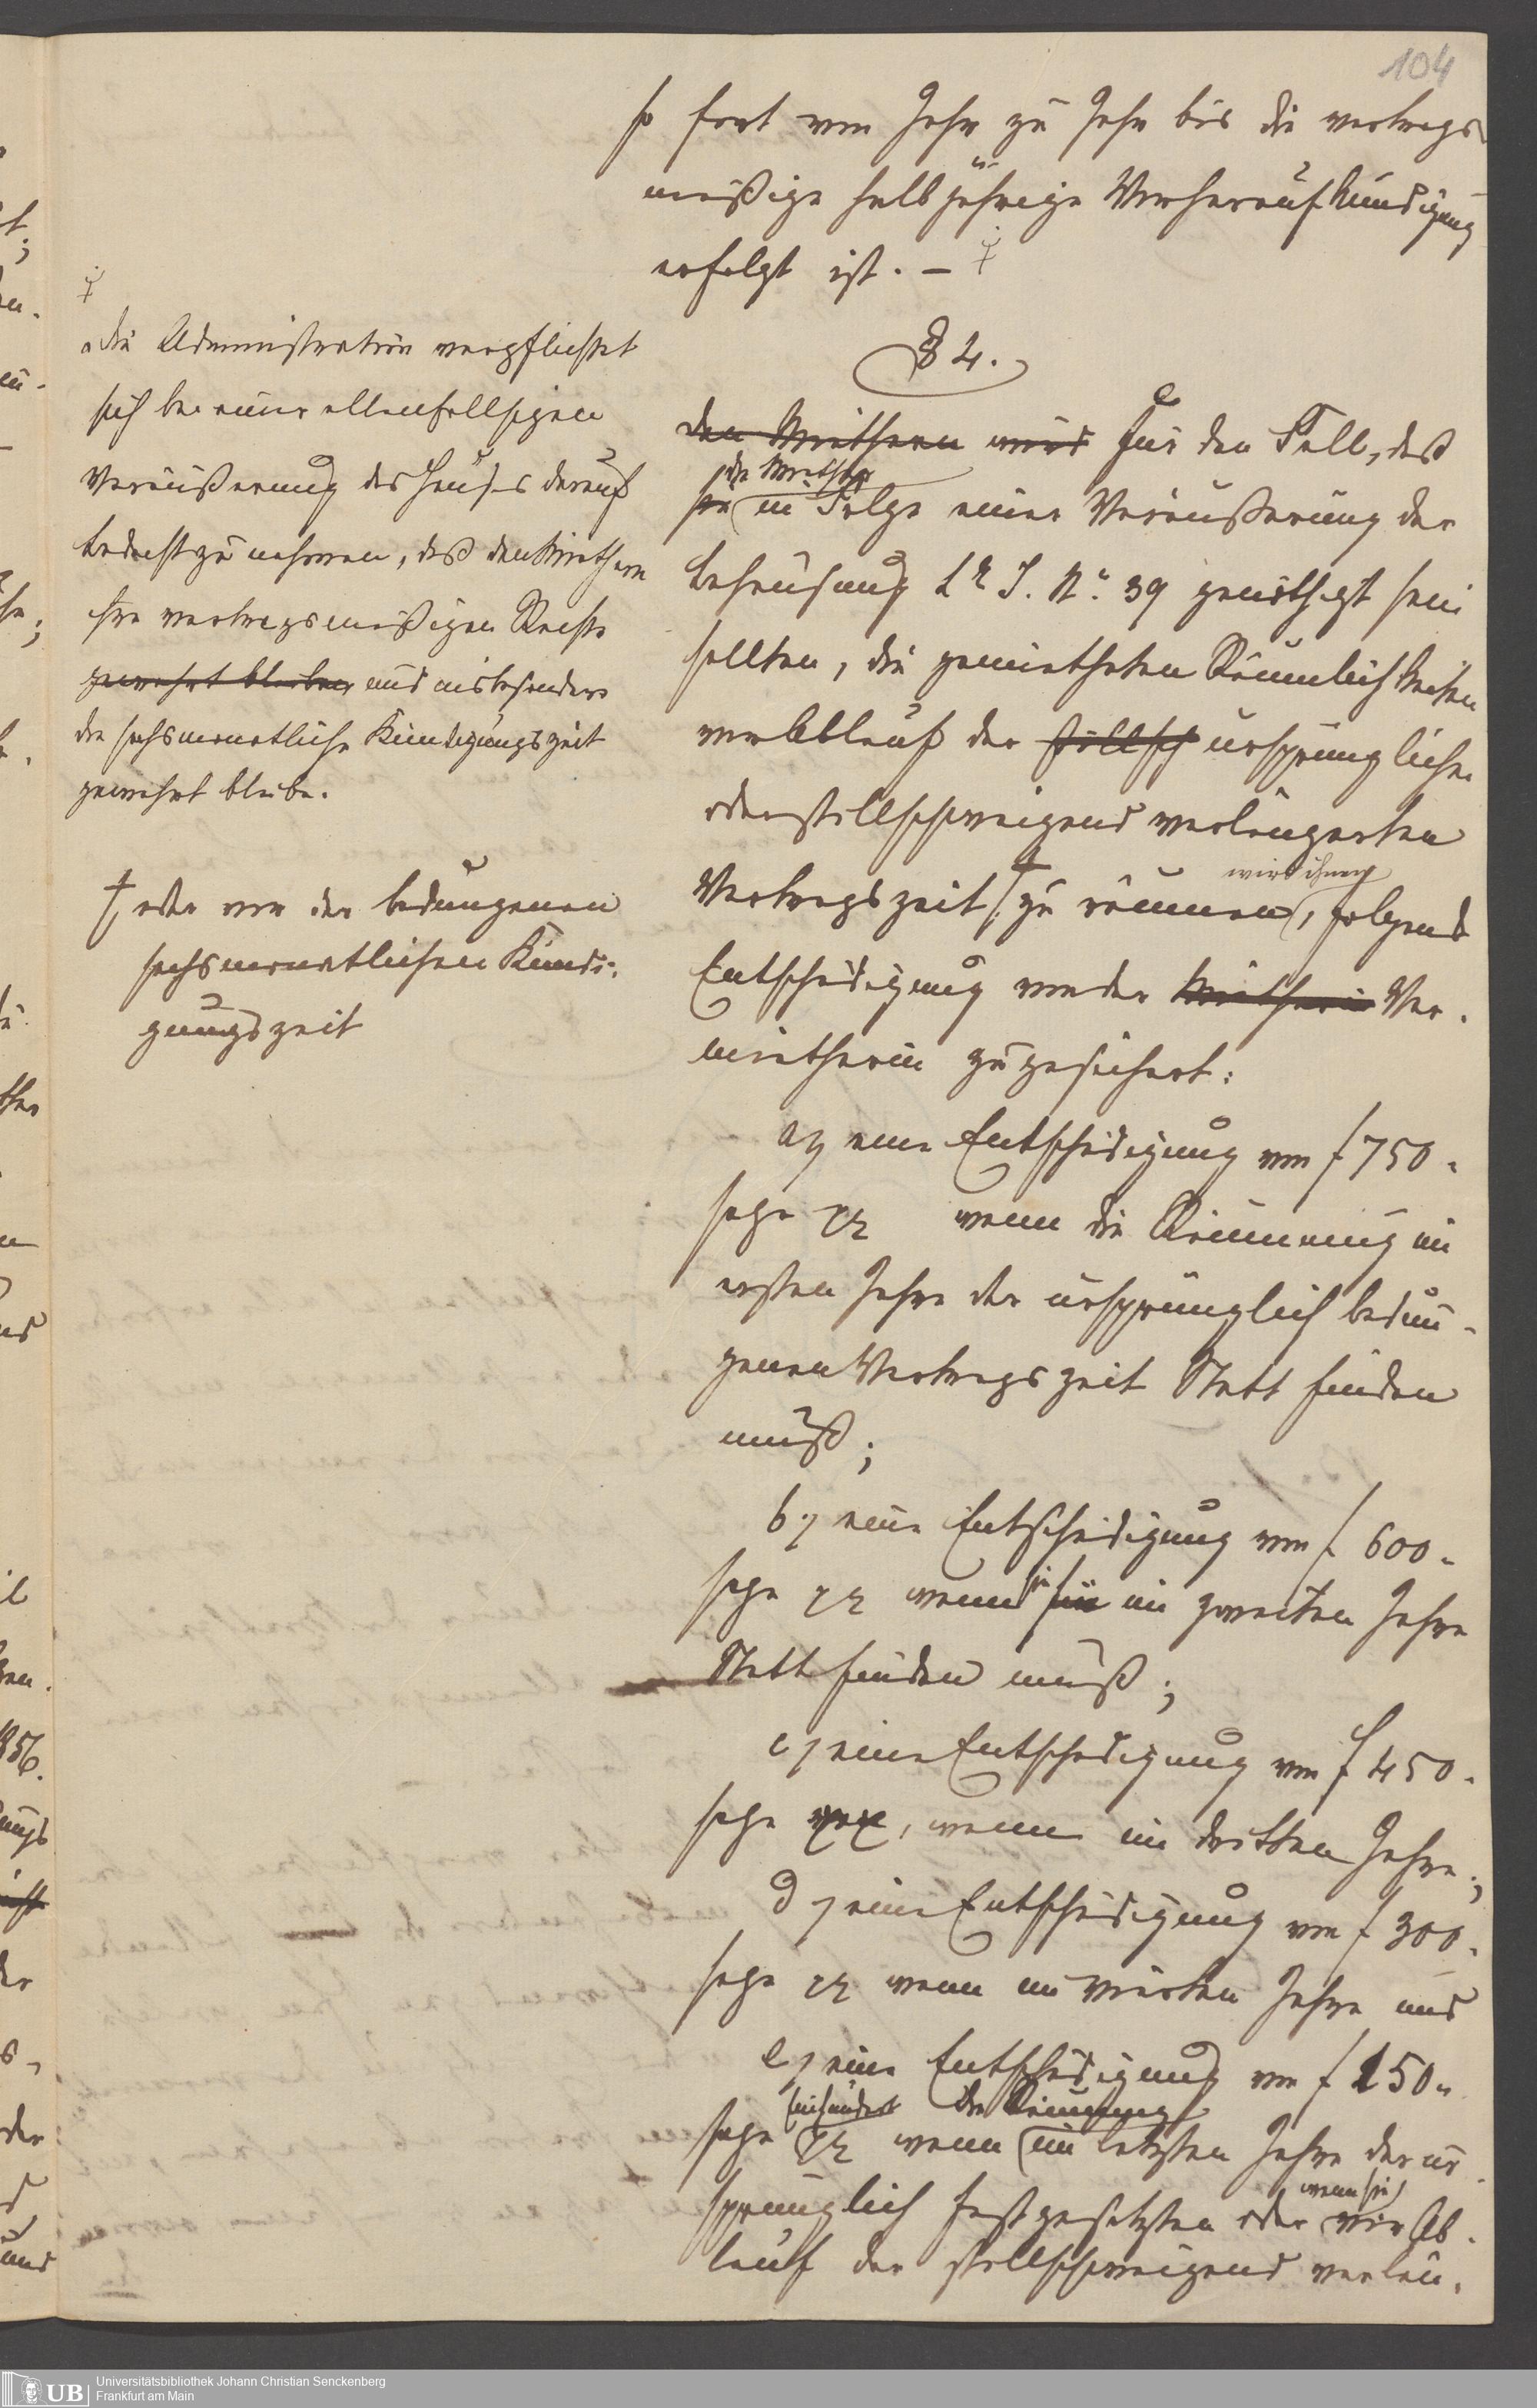 104
so fort von Jahr zu Jahr bis die vertrags-
mäßige halbjährige Vorheraufkündigung
erfolgt ist. –
§ 4.
den Miethern wird Für den Fall, daß
die Miether
sie in Folge einer Veräußerung der
Behausung Lr J. No. 39 genöthigt sein
sollten, die gemietheten Räumlichkeiten
vor Ablauf der stillsch ursprünglichen
oder stillschweigend verlängerten
Vertragszeit † zu räumen, wird ihnen folgende
Entschädigung von der Mietherin Ver-
mietherin zugesichert:
a) eine Entschädigung von f 750.
sage wenn die Räumung im
ersten Jahre der ursprünglich bedun-
genen Vertragszeit Statt finden
muß;
b) eine Entschädigung von f 600.
sage wenn sie im zweiten Jahre
Statt finden muß;
c) eine Entschädigung von f 450.
sage xxx, wenn im dritten Jahre;
d) eine Entschädigung von f 300.
sage wenn im vierten Jahre und
e) eine Entschädigung von f 150.
einhundert die Räumung
sage wenn im letzten Jahre der ur-
sprünglich festgesetzten oder wenn sie vor Ab-
lauf der stillschweigend verlän-
die Administration verpflichtet
sich bei einer allenfallsigen
Veräußerung des Hauses darauf
Bedacht zu nehmen, daß den Miethern
ihre vertragsmäßigen Rechte
gewahrt bleiben und insbesondere
die sechsmonatliche Kündigungszeit
gewahrt bleibe.
† oder vor der bedungenen
sechsmonatlichen Kündi-
gungszeit
UB
Universitätsbibliothek Johann Christian Senckenberg
Frankfurt am Main